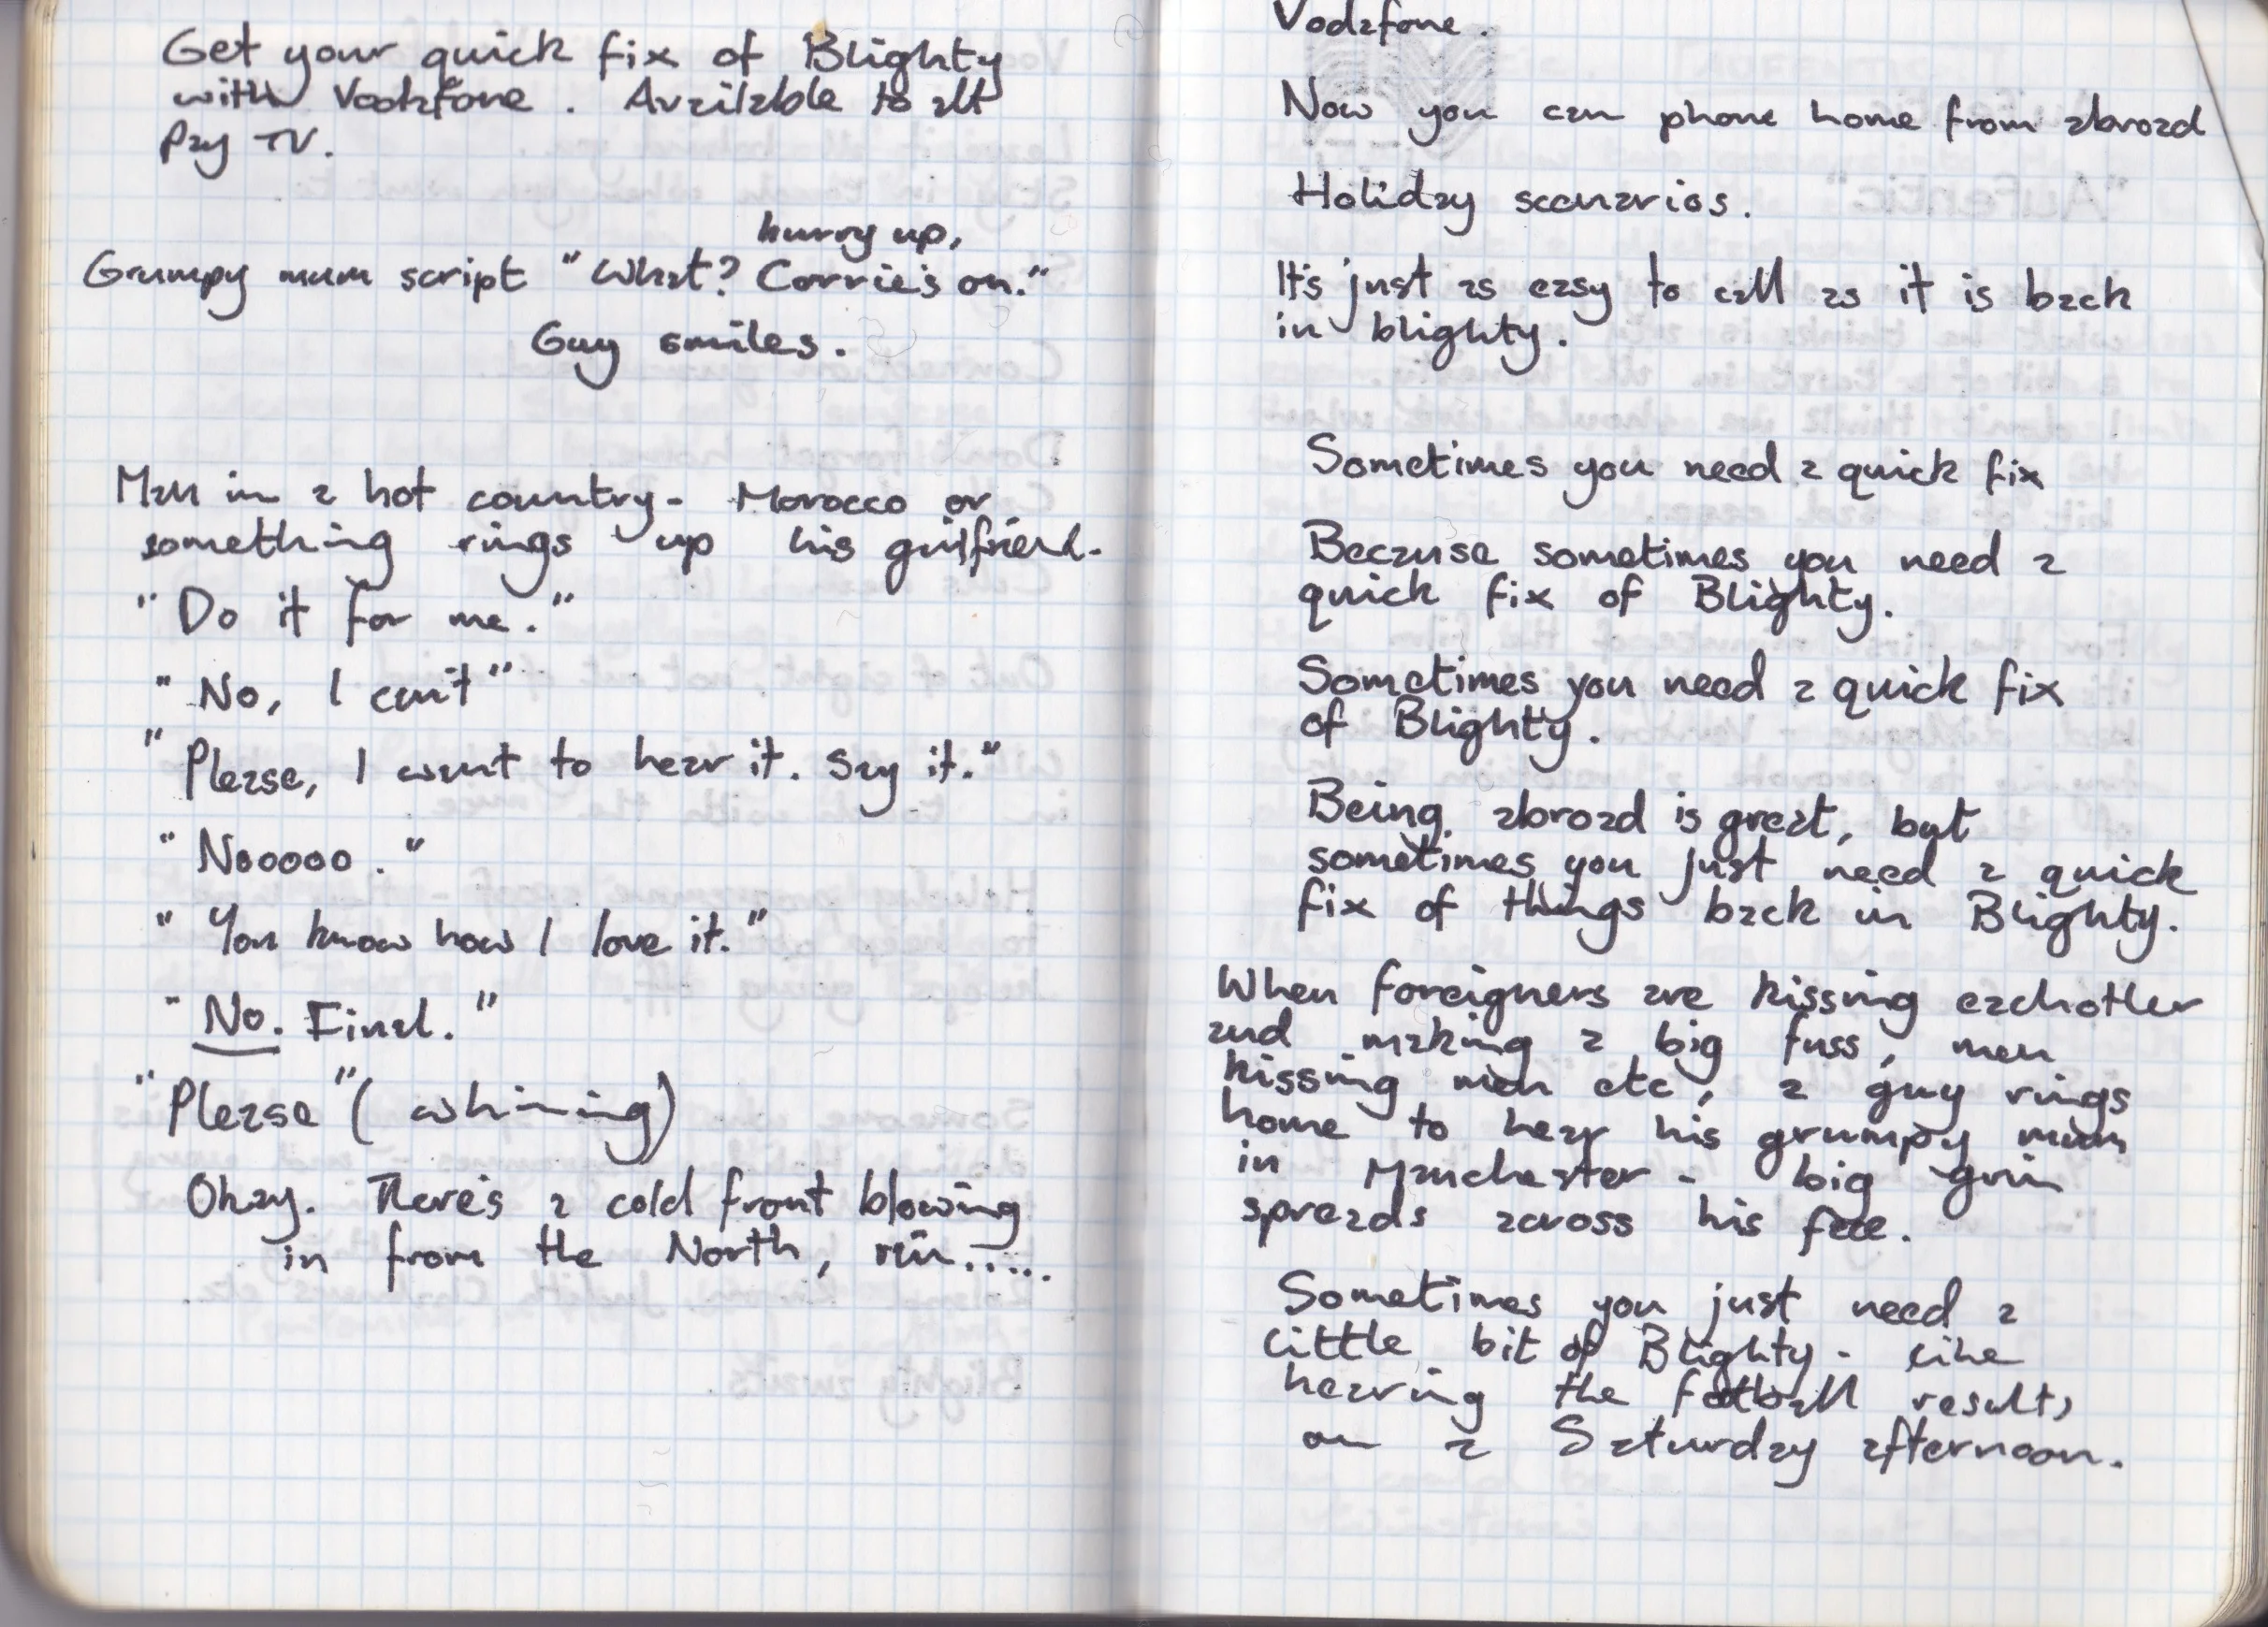 Get your quick fix of Blighty
with Vodafone. Available to all
Pay TV.
hurry up,
Grumpy mum script "What? Corrie's on."
Guy smiles.
Man in a hot country - Morocco or
something rings up his girlfriend.
"Do it for me."
"No, I can't"
"Please, I want to hear it. Say it."
"Nooooo."
"You know how I love it."
"No. Final."
"Please" (whining)
Okay. There's a cold front blowing
in from the North, rain.....
Vodafone.
Now you can phone home from abroad
Holiday scenarios.
It's just as easy to call as it is back
in blighty.
Sometimes you need a quick fix
Because sometimes you need a
quick fix of Blighty.
Sometimes you need a quick fix
of Blighty.
Being abroad is great, but
sometimes you just need a quick
fix of things back in Blighty.
When foreigners are kissing eachother
and making a big fuss, men
kissing men etc, a guy rings
home to hear his grumpy mum
in Manchester - big grin
spreads across his face.
Sometimes you just need a
little bit of Blighty - like
hearing the football results
on a Saturday afternoon.